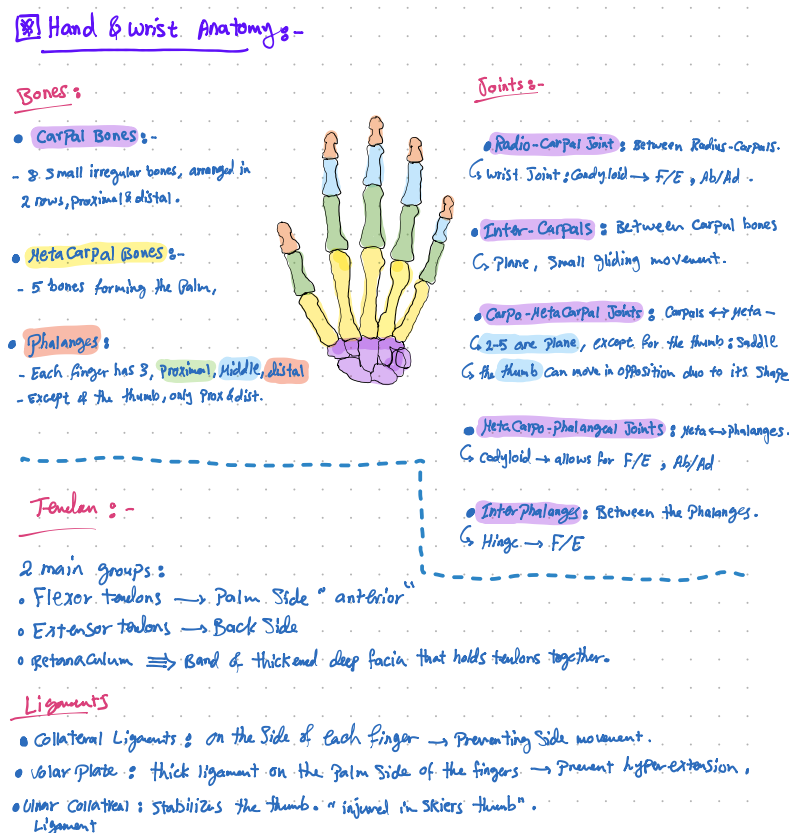 Hand & Wrist Anatomy:-
Bones:
• Carpal Bones:-
- 8 small irregular bones, arranged in
2 rows, proximal & distal.
• MetaCarpal Bones:-
- 5 bones forming the Palm,
• Phalanges:
- Each finger has 3, Proximal, Middle, distal
- Except of the thumb, only Prox & dist.
Joints:-
• Radio-Carpal Joint: Between Radius-Carpals.
↳ Wrist Joint: Condyloid → F/E, Ab/Ad.
• Inter-Carpals: Between Carpal bones
↳ Plane, Small gliding movement.
• Carpo-MetaCarpal Joints: Carpals ↔ Meta-
↳ 2-5 are Plane, except for the thumb: Saddle
↳ the thumb Can move in opposition due to its Shape
• MetaCarpo-Phalangeal Joints: Meta ↔ Phalanges.
↳ Codyloid → allows for F/E, Ab/Ad
• InterPhalanges: Between the Phalanges.
↳ Hinge → F/E
Tendon:-
2 main groups:
• Flexor tendons → Palm Side "anterior"
• Extensor tendons → Back Side
• Retanaculum ⇛ Band of thickened deep facia that holds tendons together.
Ligaments
• Collateral Ligaments: on the Side of each finger → Preventing Side movement.
• Volar Plate: thick ligament on the Palm Side of the fingers → Prevent hyper-extension.
• Ulnar Collatreal: Stabilizes the thumb. "injured in Skiers thumb".
Ligament